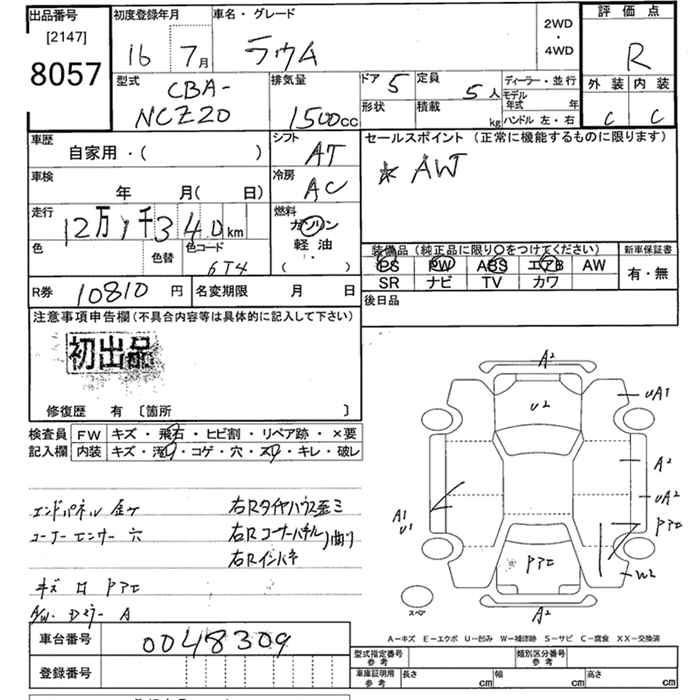 出品番号
[2147]
8057
初度登録年月
16 7月
車名・グレード
ラウム
2WD
・
4WD
評価点
R
外装 内装
C C
型式
CBA-
NCZ20
排気量
1500cc
ドア 5
形状
定員 5人
積載 kg
ディーラー・並行
モデル年式 年
ハンドル 左・右
車歴
自家用・( )
シフト
AT
セールスポイント (正常に機能するものに限ります)
☆ AW
車検
年 月( 日)
冷房
AC
走行
12万1千340km
燃料
ガソリン
軽油
・
( )
色
色替
色コード
6T4
装備品(純正品に限り○をつけてください)
PS PW ABS エアB AW
SR ナビ TV カワ
新車保証書
有・無
R券 10810円
名変期限 月 日
後日品
注意事項申告欄(不具合内容等は具体的に記入して下さい)
初出品
修復歴 有 〔箇所 〕
検査員
記入欄
FW キズ・飛石・ヒビ割・リペア跡・×要
内装 キズ・汚れ・コゲ・穴・スレ・キレ・破レ
エンドパネル
コーナーセンサー 穴
右Rタイヤハウス歪ミ
右Rコーナーパネル 曲り
右Rインパネ
A2
U2
UA1
A2
UA2
A1
U1
W2
A2
スペア
A−キズ E−エクボ U−凹み W−補修跡 S−サビ C−腐食 XX−交換済
車台番号 0048309
登録番号
型式指定番号
参考
類別区分番号
参考
車庫証明用
参考
長さ cm
幅 cm
高さ cm